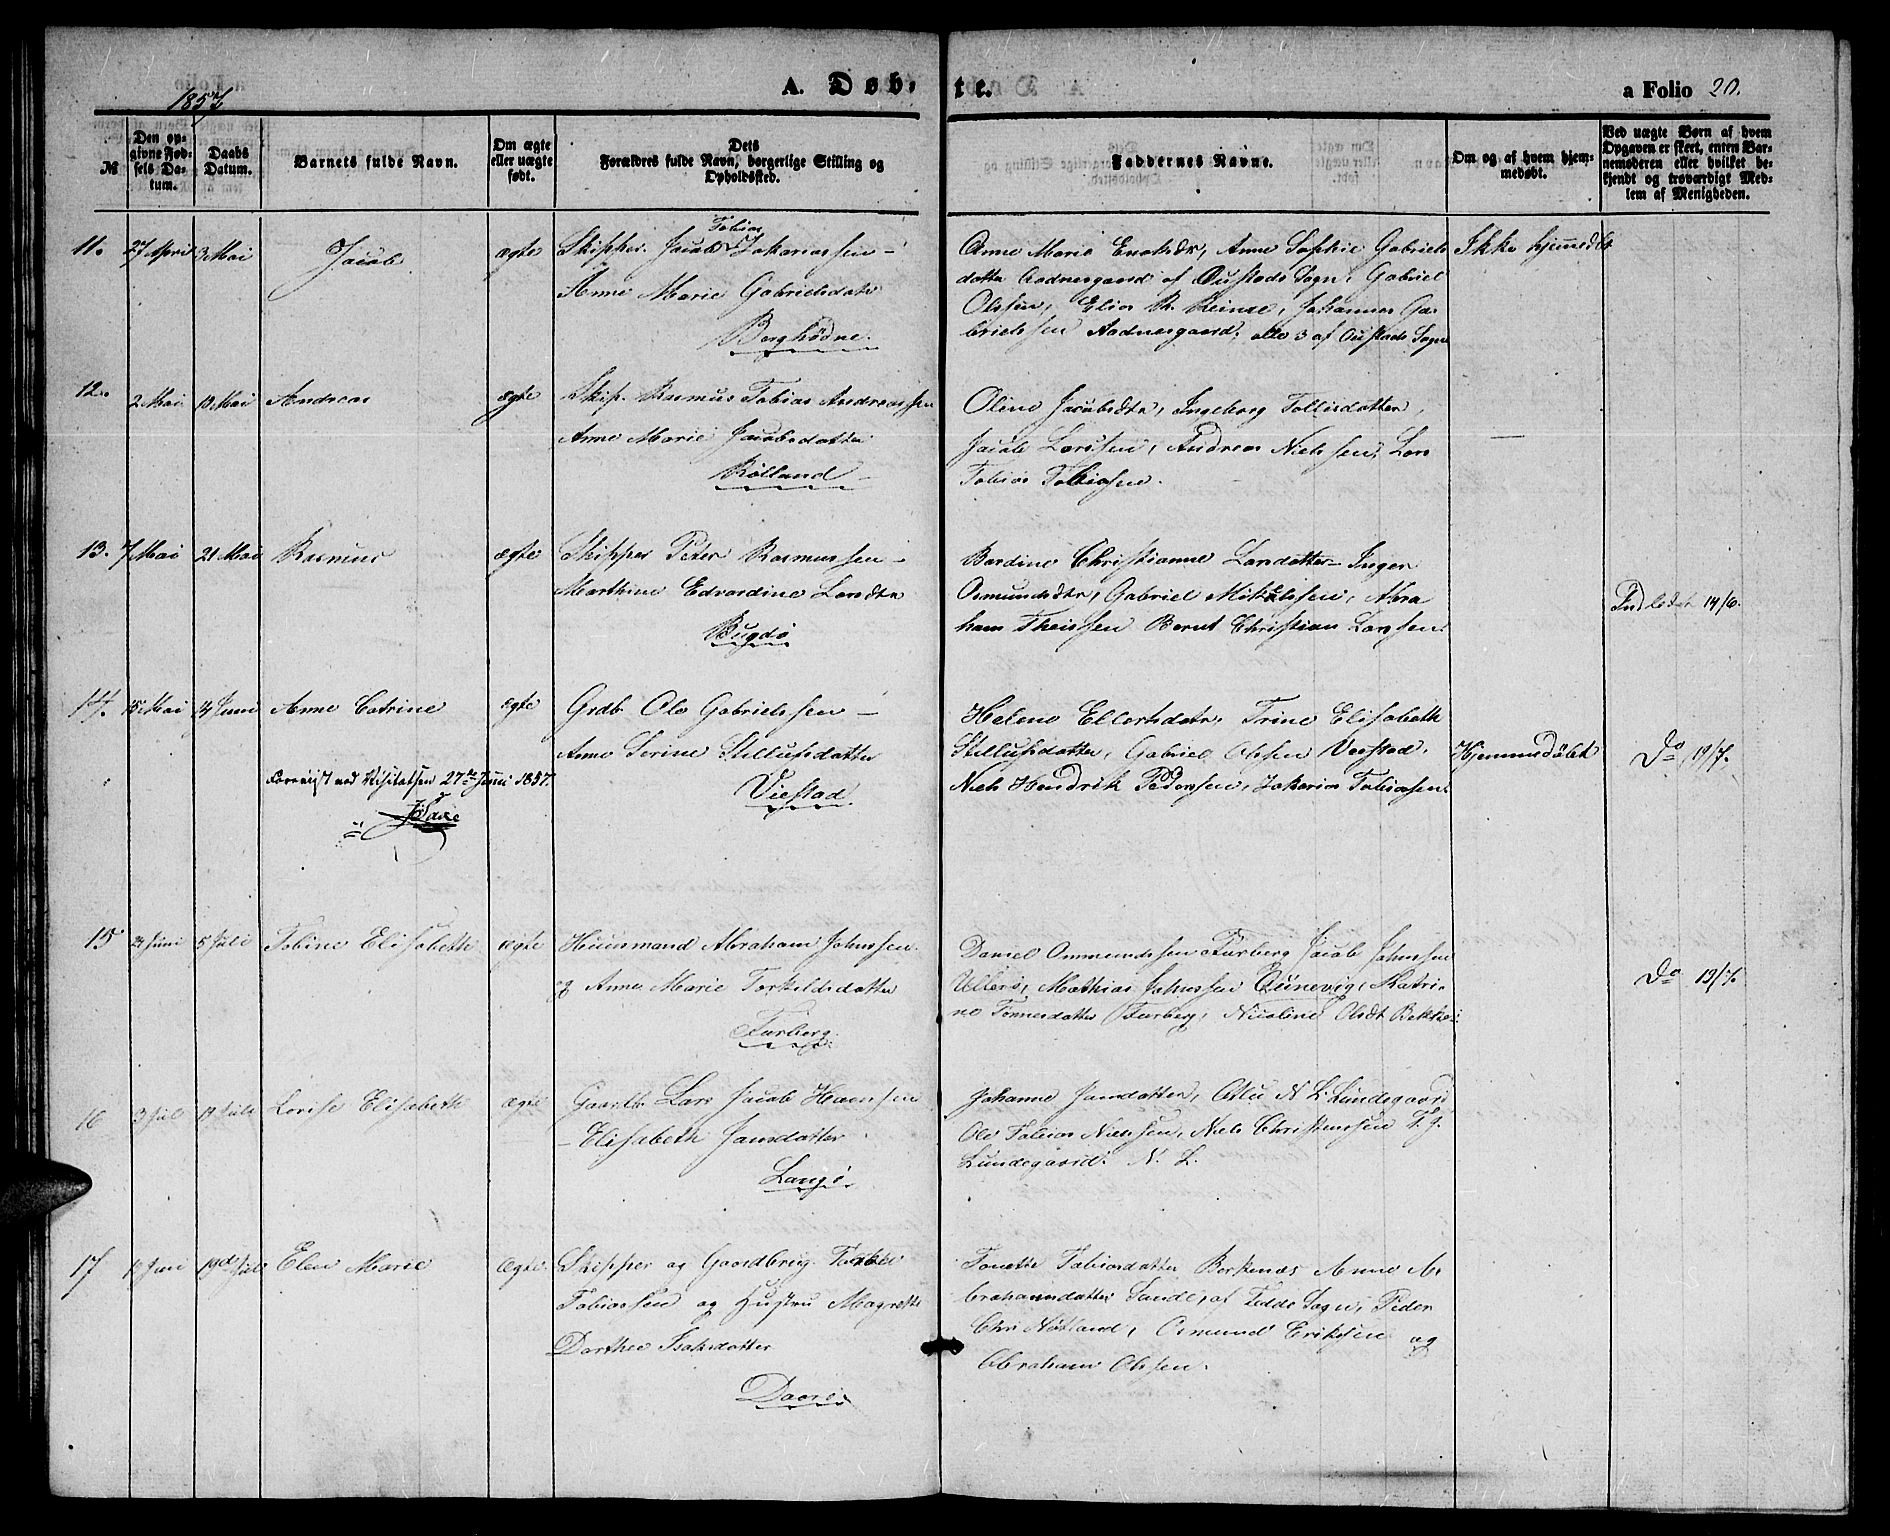 A. Døb-
te.
a Folio 20.
1857
№
Den op-
givne Fød-
sels Da-
tum.
Daabs
Datum.
Barnets fulde Navn.
Om ægte
eller uægte
født.
Dets
Forældres fulde Navn, borgerlige Stilling og
Opholdssted.
Faddernes Navne.
Om og af hvem hjem-
medøbt.
Ved uægte Børn af hvem
Opgaven er skeet, enten Bar-
nemoderen eller hvilket be-
kjendt og troværdigt Med-
lem af Menigheden.
11. 27 April 3 Mai Jacob ægte
Tobias
Skipper Jacob Zakariassen –
Anne Marie Gabrielsdatr
Berghødne.
Anne Marie Enoksdr, Anne Sophie Gabriels
datter Aadnesgaard af Oustads Sogn, Gabriel
Olssen, Elias R. Reinse, Johannes Ga-
brielssen Aadnesgaard, alle 3 af Oustads Sogn
Ikke hjemmedbt
12. 2 Mai 10 Mai Andreas ægte
Skip. Rasmus Tobias Andreassen
Anne Marie Jacobsdatter
Rølland
Oline Jacobsdtr, Ingeborg Tollisdatter,
Jacob Larssen, Andreas Nielssen, Lars
Tobias Tobiassen.
—
13. 7 Mai 21 Mai Rasmus ægte
Skipper Peter Rasmussen –
Marthine Edvardine Larsdtr
Bugdø
Bardine Christianne Larsdatter – Inger
Osmundsdtr, Gabriel Mikkelssen, Abra
ham Theissen Bernt Christian Larssen.
Indledet 14/6.
14. 15 Mai 14 Juni Anne Catrine ægte
Grdb. Ole Gabrielssen –
Anne Serine Stillufsdatter
Viestad.
Helene Ellertsdatr, Trine Elisabeth
Stillufsdatter, Gabriel Olssen Veestad,
Niels Hendrik Pedersen, Zakarias Tobiassen.
Hjemmedøbt
Do 19/7.
Foreviist ved Visitatsen 27de Juni 1857.
15 24 Juni 5 Juli Tobine Elisabeth ægte
Huusmand Abraham Johnssen
og Anne Marie Torkildsdatter
Furberg.
Daniel Ommundssen Furberg Jacob Johnssen
Ullerø, Mathias Johnssen Qvinevig, Katri-
ne Tønnesdatter Furberg, Nicoline Olsdt Bekke
Do 19/7.
16 3 Jul 19 Juli Lovise Elisabeth ægte
Gaardb. Lars Jacob Hansen
– Elisabeth Jansdatter
Langø.
Johanne Jansdatter, Aslu N. L. Lundegaard
Ole Tobias Nielssen, Niels Christenssen T. J.
Lundegaard. N. L.
17 Juni 19d Juli Elen Marie Ægte.
Skipper og Gaardbrug. Tobias
Tobiassen og Hustru Magrethe
Dorthea Isaksdatter
Daarø
Tonette Tobiasdatter Berkenæs Anne A-
brahamsdatter Sande, af Fedde Sogn, Peder
Chri Nøtland, Osmund Erikssen og
Abraham Olssen.